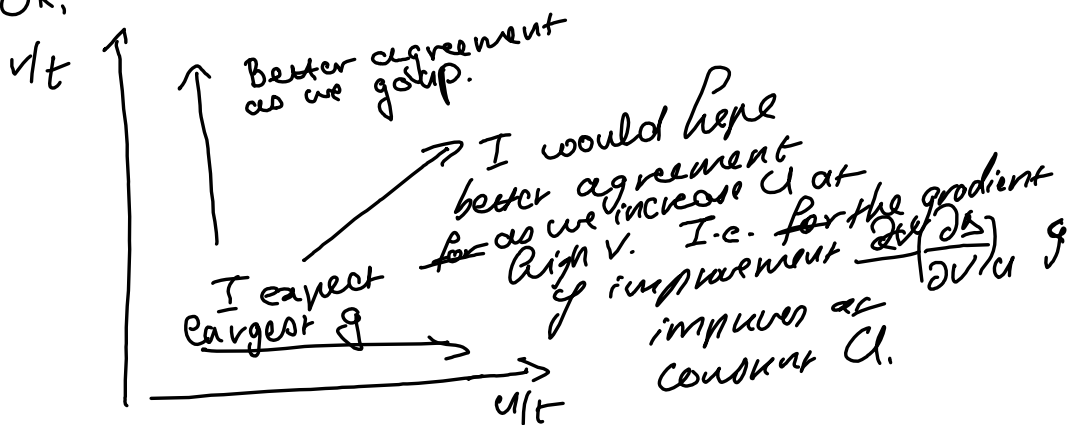 OK.
V/t
Better agreement
as we go up.
I would hope
better agreement
as we increase U at
high V. I.e. for the gradient
of improvement (∂Δ/∂V)U g
improves at
constant U.
I expect
largest g
U/t